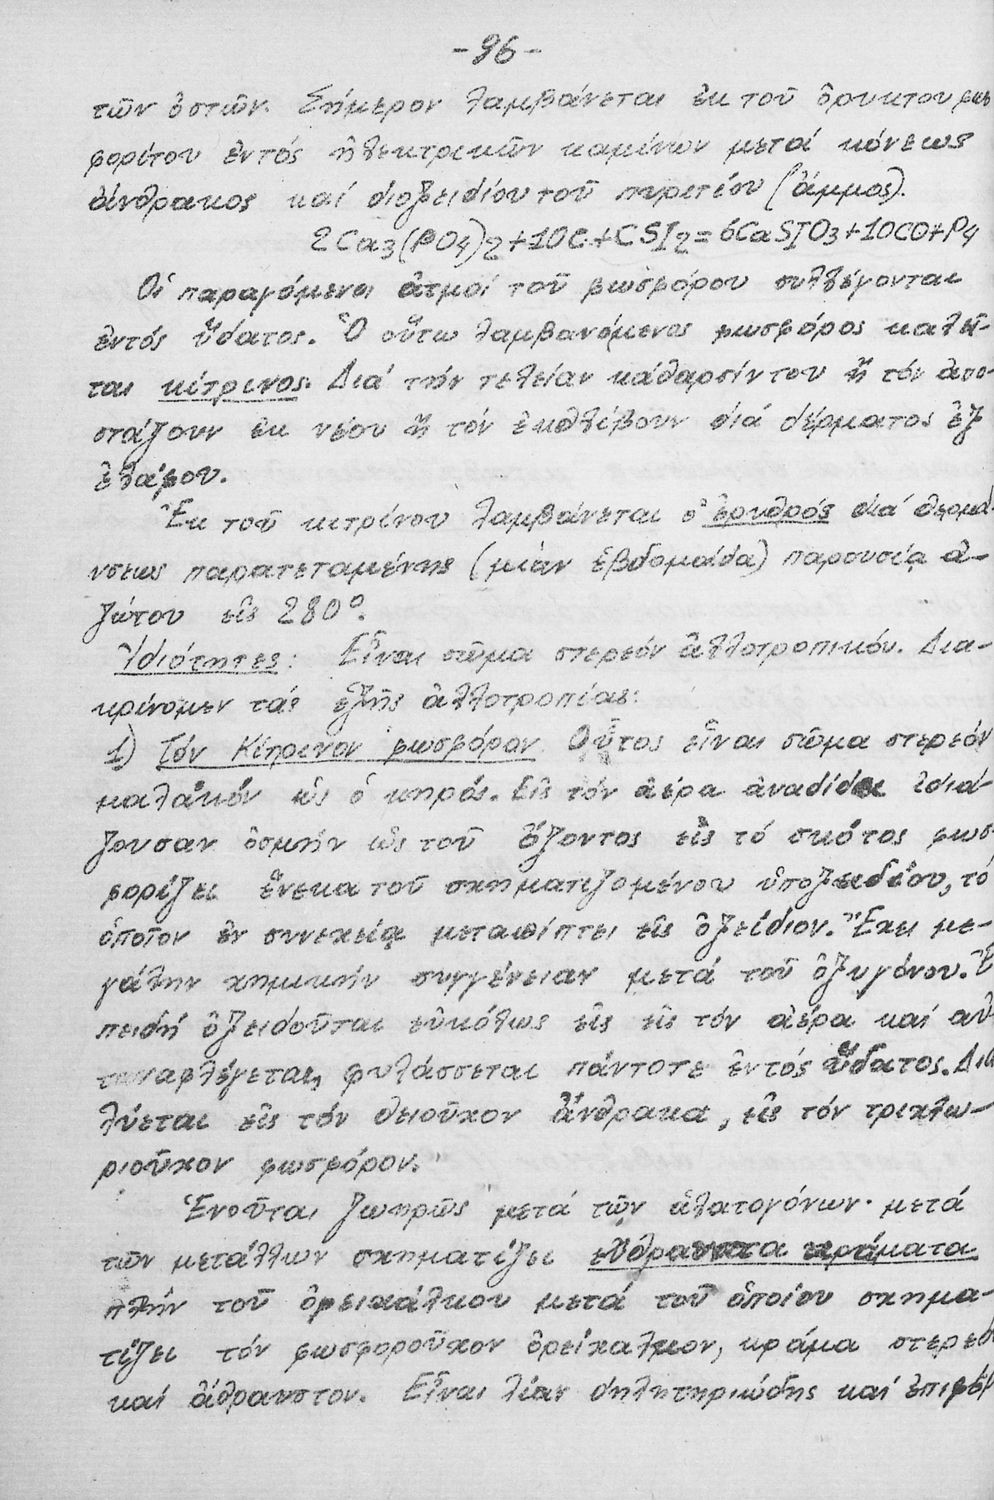 -96-
τῶν ὀστῶν. Σήμερον λαμβάνεται ἐκ τοῦ ὀρυκτου φωσ
φορίτου ἐντός ἠλεκτρικῶν καμίνων μετά κόνεως
ἄνθρακος καί διοξειδίου τοῦ πυριτίου (ἄμμος).
2Ca3(PO4)2+10C+CSI2=6CaSIO3+10CO+P4
Οἱ παραγόμενοι ἀτμοί τοῦ φωσφόρου συλλέγονται
ἐντός ὕδατος. Ὁ οὕτω λαμβανόμενος φωσφόρος καλεῖ-
ται κίτρινος. Διά τήν τελείαν κάθαρσίν του ἤ τόν ἀπο-
στάζουν ἐκ νέου ἤ τόν ἐκθλίβουν διά δέρματος ἐξ
ἐλάφου.
Ἐκ τοῦ κιτρίνου λαμβάνεται ὁ ἐρυθρός διά θερμά-
νσεως παρατεταμένης (μίαν ἑβδομάδα) παρουσίᾳ ἀ-
ζώτου εἰς 280°.
Ἰδιότητες: Εἶναι σῶμα στερεόν ἀλλοτροπικόν. Δια-
κρίνομεν τάς ἑξῆς ἀλλοτροπίας:
1) Τόν Κίτρινον φωσφόρον. Οὗτος εἶναι σῶμα στερεόν
μαλακόν ὡς ὁ κηρός. Εἰς τόν ἀέρα ἀναδίδει ἰδιά
ζουσαν ὀσμήν ὡς τοῦ ὄζοντος εἰς τό σκότος φωσ
φορίζει ἕνεκα τοῦ σχηματιζομένου ὑποξειδίου, τό
ὁποῖον ἐν συνεχείᾳ μεταπίπτει εἰς ὀξείδιον. Ἔχει με-
γάλην χημικήν συγγένειαν μετά τοῦ ὀξυγόνου. Ἐ
πειδή ὀξειδοῦται εὐκόλως εἰς εἰς τόν ἀέρα καί αὐ
ταναφλέγεται, φυλάσσεται πάντοτε ἐντός ὕδατος. Δια
λύεται εἰς τόν θειοῦχον ἄνθρακα, εἰς τόν τριχλω-
ριοῦχον φωσφόρον.
Ἑνοῦται ζωηρῶς μετά τῶν ἁλατογόνων. μετά
τῶν μετάλλων σχηματίζει εὔθραυστα κράματα
πλήν τοῦ ὀρειχάλκου μετά τοῦ ὁποίου σχημα-
τίζει τόν φωσφοροῦχον ὀρείχαλκον, κράμα στερεό
καί ἄθραυστον. Εἶναι λίαν δηλητηριώδης καί ἐπιφέρ